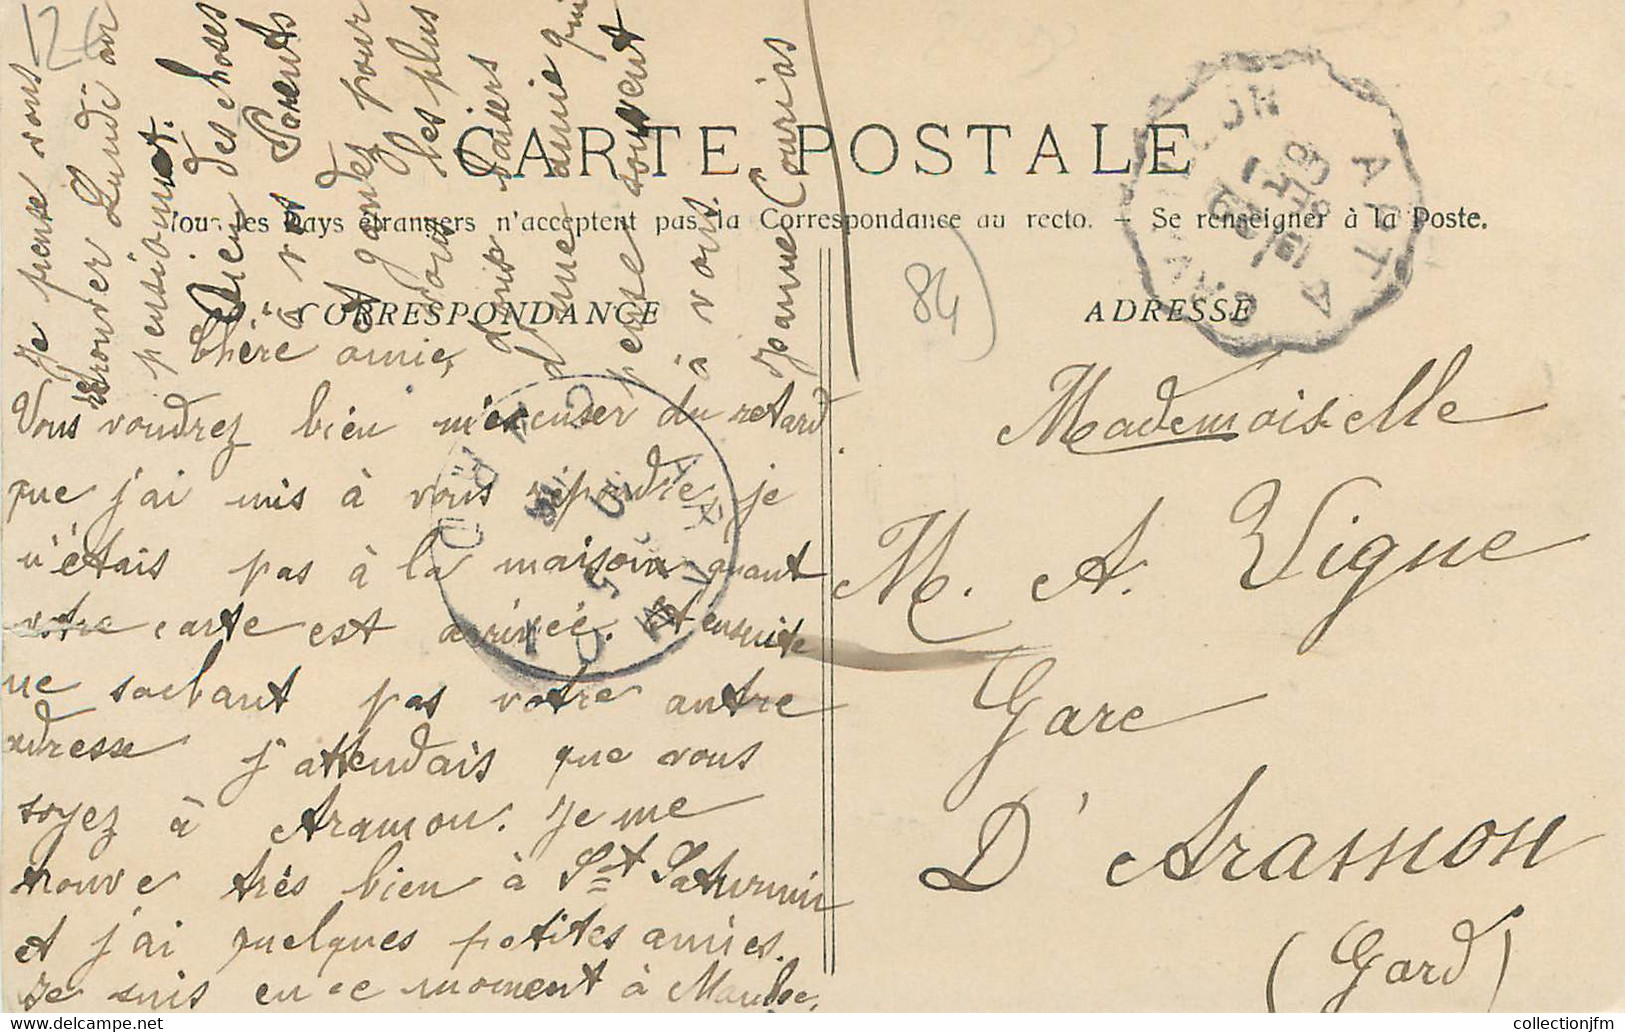 126
CARTE POSTALE
Tous les Pays étrangers n'acceptent pas la Correspondance au recto. - Se renseigner à la Poste.
CORRESPONDANCE
ADRESSE
84)
Chère amie,
Vous voudrez bien m'excuser du retard
que j'ai mis à vous répondre, je
n'étais pas à la maison quant
votre carte est arrivée. Et ensuite
ne sachant pas votre autre
adresse j'attendais que vous
soyez à Aramon. Je me
trouve très bien à St Saturnin
et j'ai quelques petites amies.
Je suis en ce moment à
Je pense vous
trouver Lundi au
pensionnat.
Bien des choses
à vos Parents
et gardez pour
vous les plus
doux baisers
d'une amie qui
pense souvent
à vous.
Jeanne Courias
Mademoiselle
M. A. Vigne
Gare
D'Aramon
(Gard)
APT A
collectionjfm